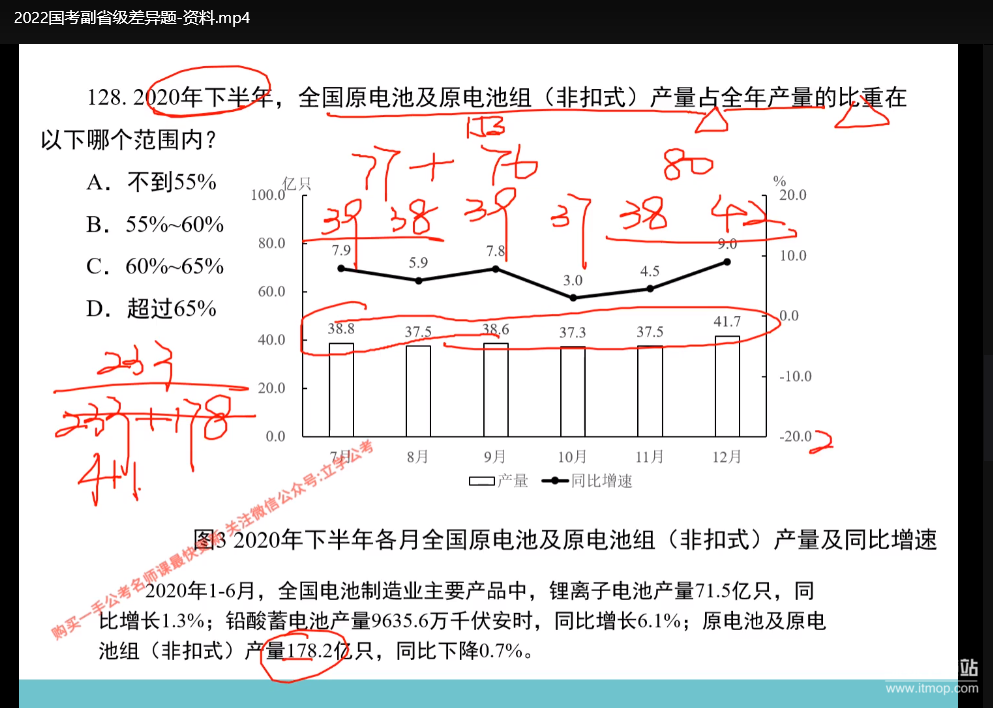 2022国考副省级差异题-资料.mp4
128. 2020年下半年，全国原电池及原电池组（非扣式）产量占全年产量的比重在
以下哪个范围内？
A．不到55%
B．55%~60%
C．60%~65%
D．超过65%
77 + 76 80
39 38 39 37 38 42
亿只 %
100.0 20.0
80.0 10.0
60.0 0.0
40.0 -10.0
20.0 -20.0
0.0
7.9 5.9 7.8 3.0 4.5 9.0
38.8 37.5 38.6 37.3 37.5 41.7
7月 8月 9月 10月 11月 12月
产量 同比增速
233
233+178
411
2
图3 2020年下半年各月全国原电池及原电池组（非扣式）产量及同比增速
2020年1-6月，全国电池制造业主要产品中，锂离子电池产量71.5亿只，同
比增长1.3%；铅酸蓄电池产量9635.6万千伏安时，同比增长6.1%；原电池及原电
池组（非扣式）产量178.2亿只，同比下降0.7%。
购买一手公考名师课最快更新 关注微信公众号:立学公考
站
www.itmop.com